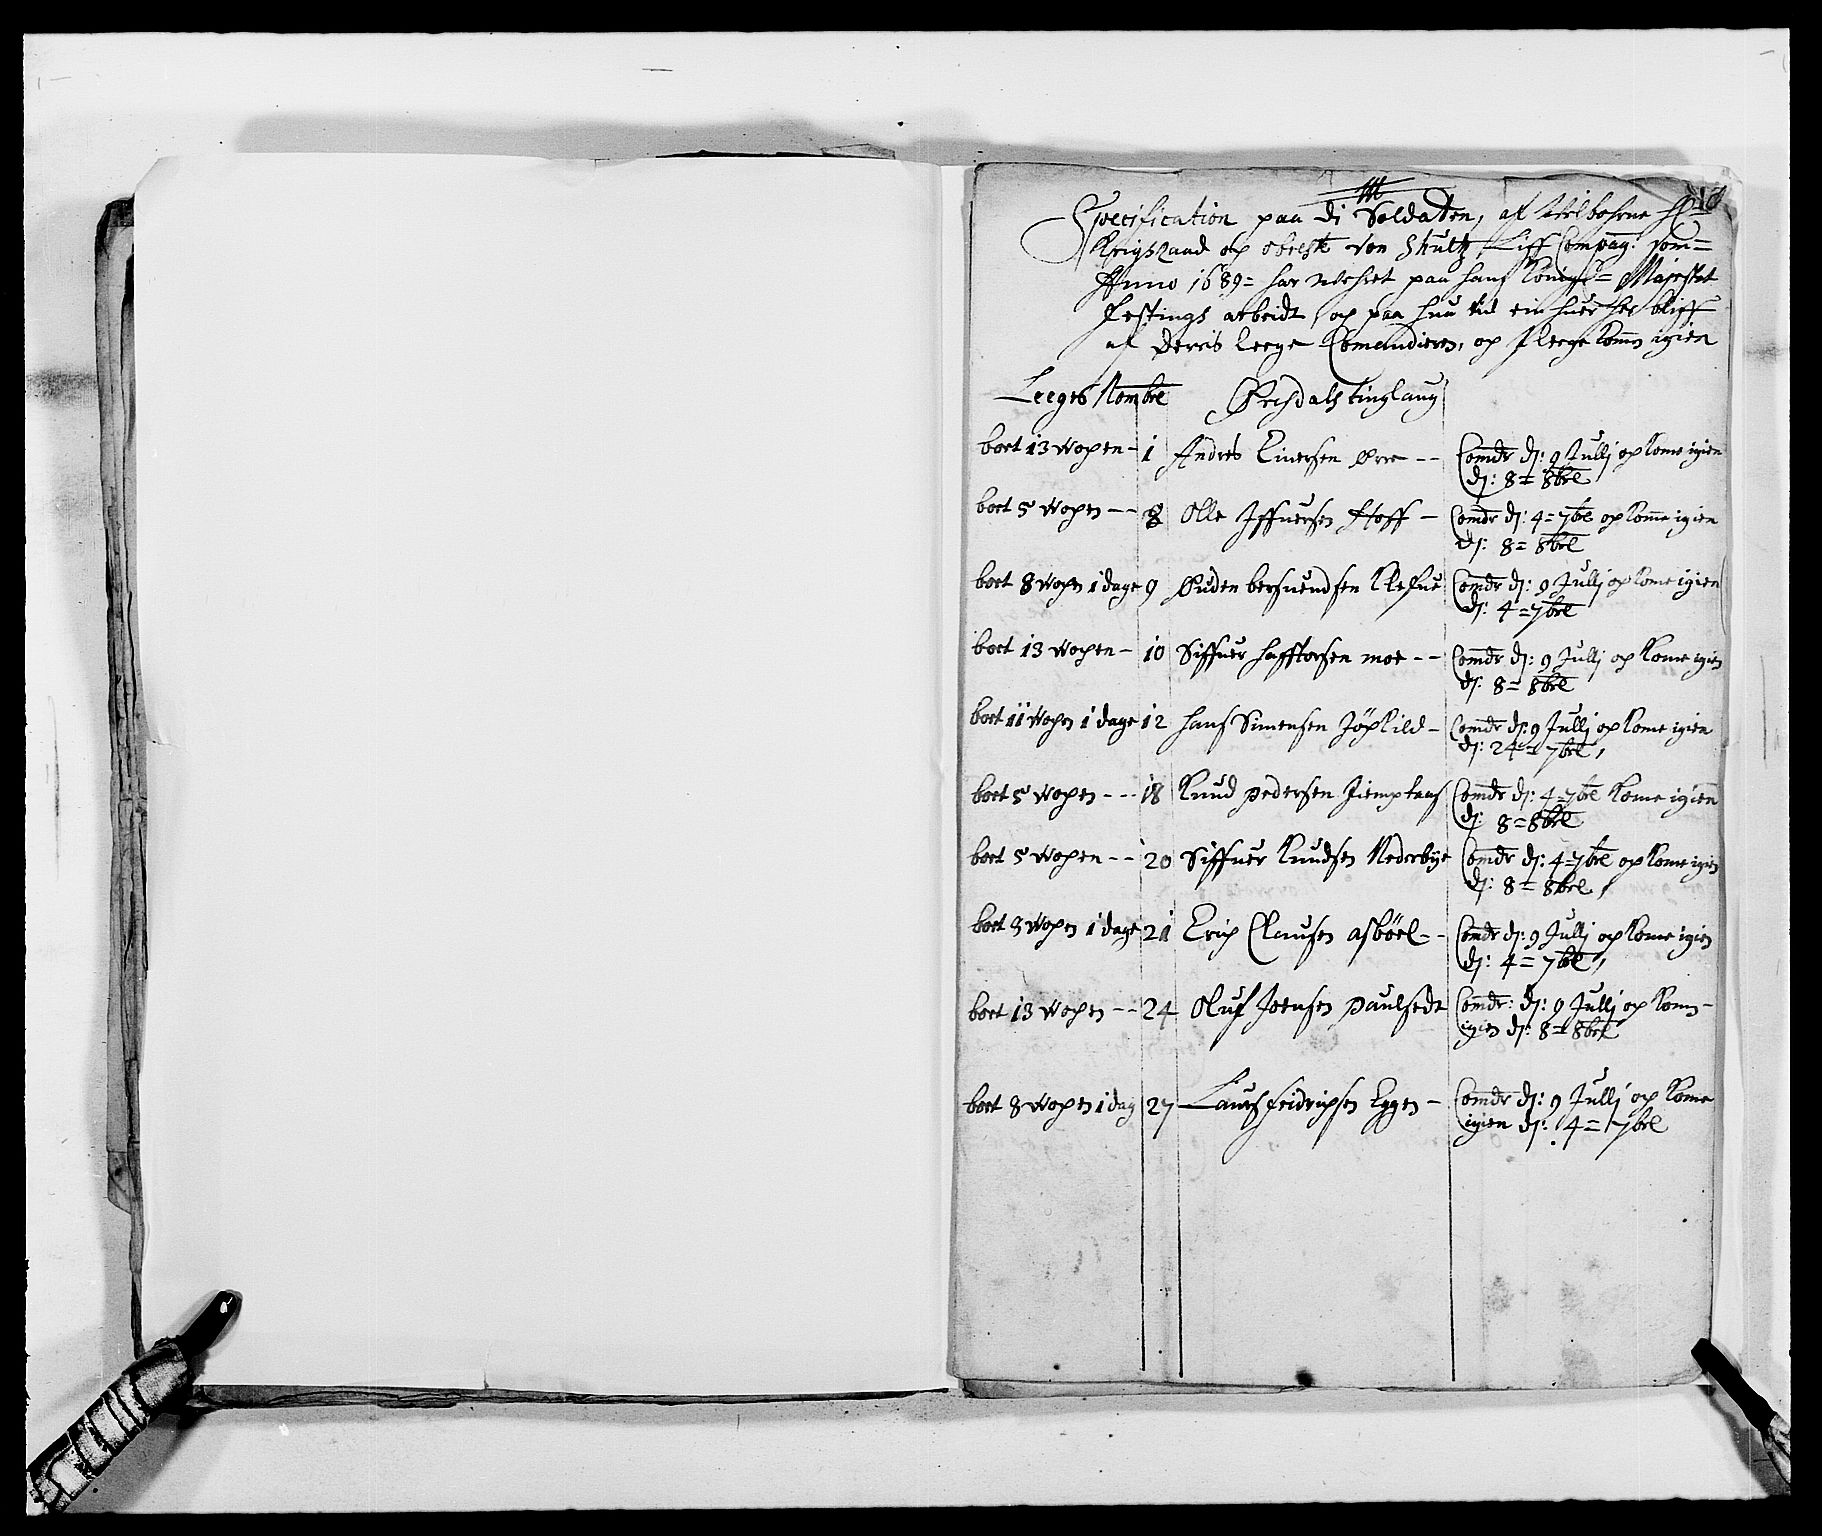 Specification paa di Soldaten, af Velbohrne H:
Krigsraad og obreste von Shultz Liff Compag: som=
Anno 1689= har verhet paa hans Konigl= Majestet
festings arbeidt, og paa hua tid ein huer her bliff
af Derris leege Comandieren, og I leege komn igien
Leeges Nombre Ørchdals tinglaug
bort 13 Wogen - 1 Andres Einersen Ørre - - Comdr dj: 9 Jullj og kome igien
dj: 8 = 8bre
bort 5 Wogen - - 8 Olle Iffuersen Hoff - Comdr dj: 4 = 7bre og kome igien
dj: 8 = 8bre
bort 8 Wogen 1 dage 9 Ouden bersuendsen Klefue Comdr dj: 9 Jullj og kome igien
dj: 4 = 7bre
bort 13 Wogen - 10 Siffuer hafftorsen moe - - Comdr dj: 9 Jullj og kome igien
dj: 8 = 8bre
bort 11 Wogen 1 dage 12 hans Simensen Jöskild - Comdr dj: 9 Jullj og kome igien
dj: 24 = 7bre,
bort 5 Wogen - - - 18 Knud pedersen Jiemptaas Comdr dj: 4 = 7bre kome igien
dj: 8 = 8bre
bort 5 Wogen - - 20 Siffuer Knudsen Nederbye Comdr dj: 4 = 7bre og kome igien
dj: 8 = 8bre,
bort 8 Wogen 1 dage 21 Erich Clausen asböel - - Comdr dj: 9 Jullj og kome igien
dj: 4 = 7bre,
bort 13 Wogen - - 24 Oluf Joensen paulsedt Comdr: dj: 9 Jullj og kom-
igien dj: 8 = 8bre
bort 8 Wogen 1 dag 27 Laurs feidrichsen Eggen - Comdr dj: 9 Jullj og kome
igien dj: 4 = 7bre